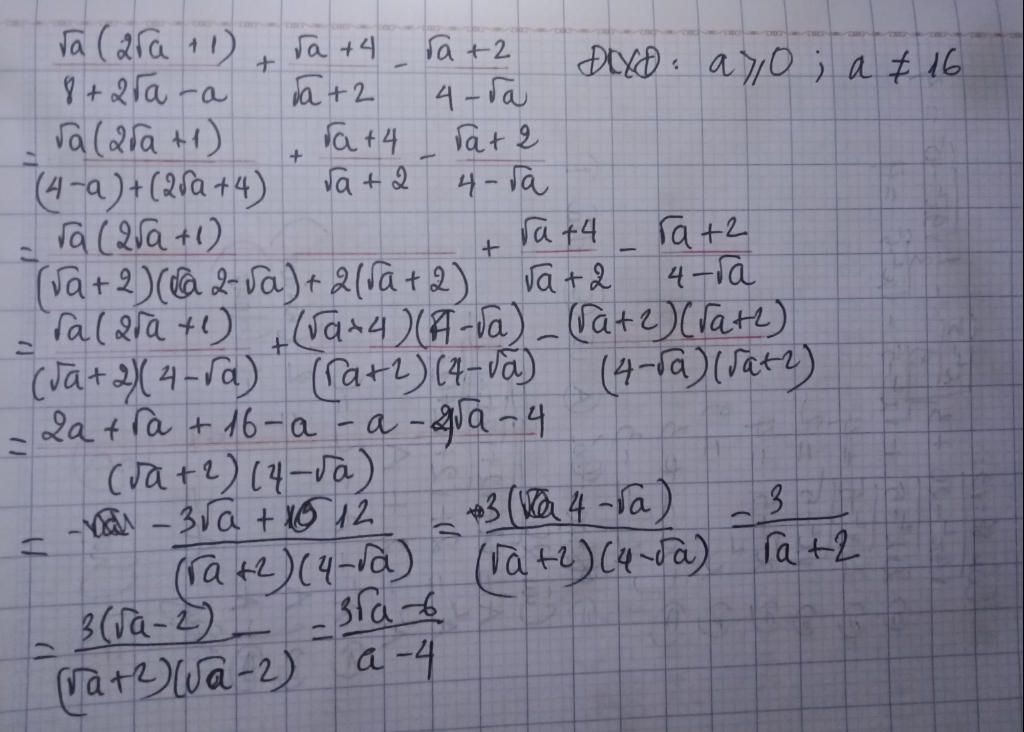 √a(2√a+1)/(8+2√a-a) + (√a+4)/(√a+2) - (√a+2)/(4-√a) ĐKXĐ: a≥0; a≠16
= √a(2√a+1)/((4-a)+(2√a+4)) + (√a+4)/(√a+2) - (√a+2)/(4-√a)
= √a(2√a+1)/((√a+2)(2-√a)+2(√a+2)) + (√a+4)/(√a+2) - (√a+2)/(4-√a)
= √a(2√a+1)/((√a+2)(4-√a)) + (√a+4)(4-√a)/((√a+2)(4-√a)) - (√a+2)(√a+2)/((4-√a)(√a+2))
= (2a+√a+16-a-a-4√a-4)/((√a+2)(4-√a))
= (-3√a+12)/((√a+2)(4-√a)) = 3(4-√a)/((√a+2)(4-√a)) = 3/(√a+2)
= 3(√a-2)/((√a+2)(√a-2)) = (3√a-6)/(a-4)